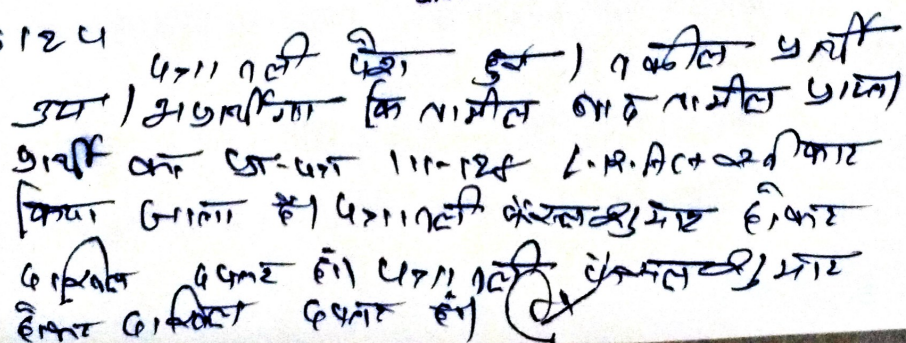 124
पत्रावली पेश हुई। वकील प्रार्थी
उप०। अप्रार्थीगण कि तामील बाद तामील प्राप्त।
प्रार्थी का प्रा-पत्र 111-128 L.R.Act स्वीकार
किया जाता है। पत्रावली फैसलशुमार होकर
दाखिल दफ्तर हो। पत्रावली फैसलशुमार
होकर दाखिल दफ्तर हो।